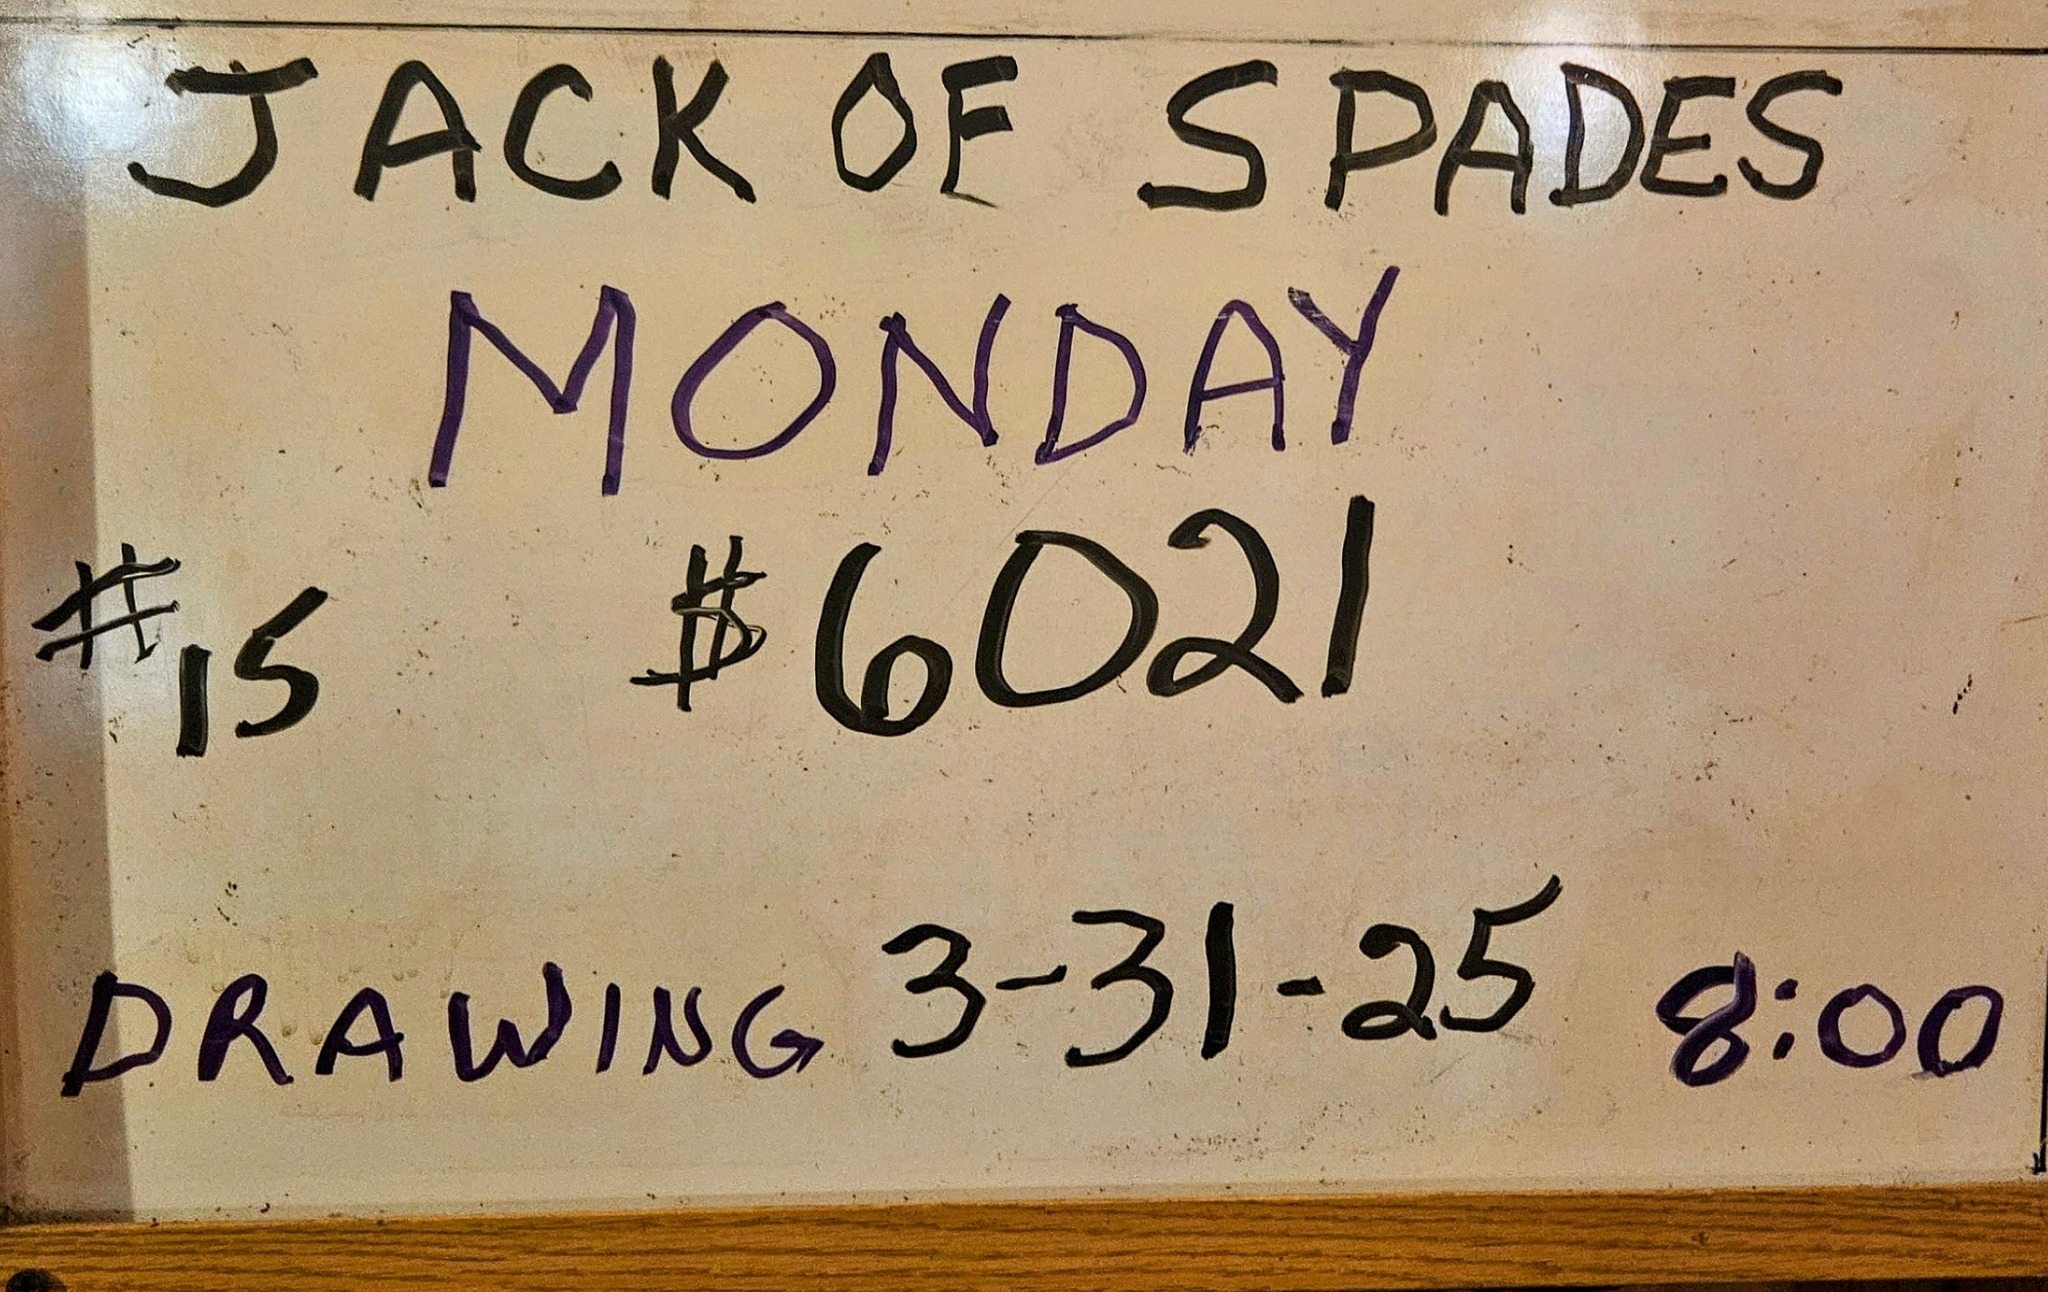 JACK OF SPADES
MONDAY
#15 $6021
DRAWING 3-31-25 8:00